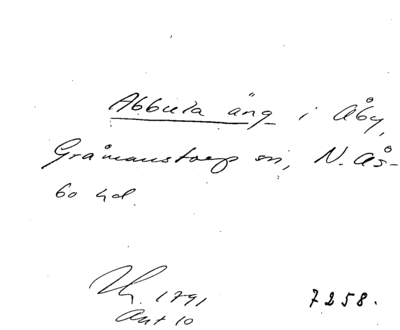 Abbula äng i Åby,
Gråmanstorp sn, N. Ås-
bo hd.
1791
Akt 10
7258.